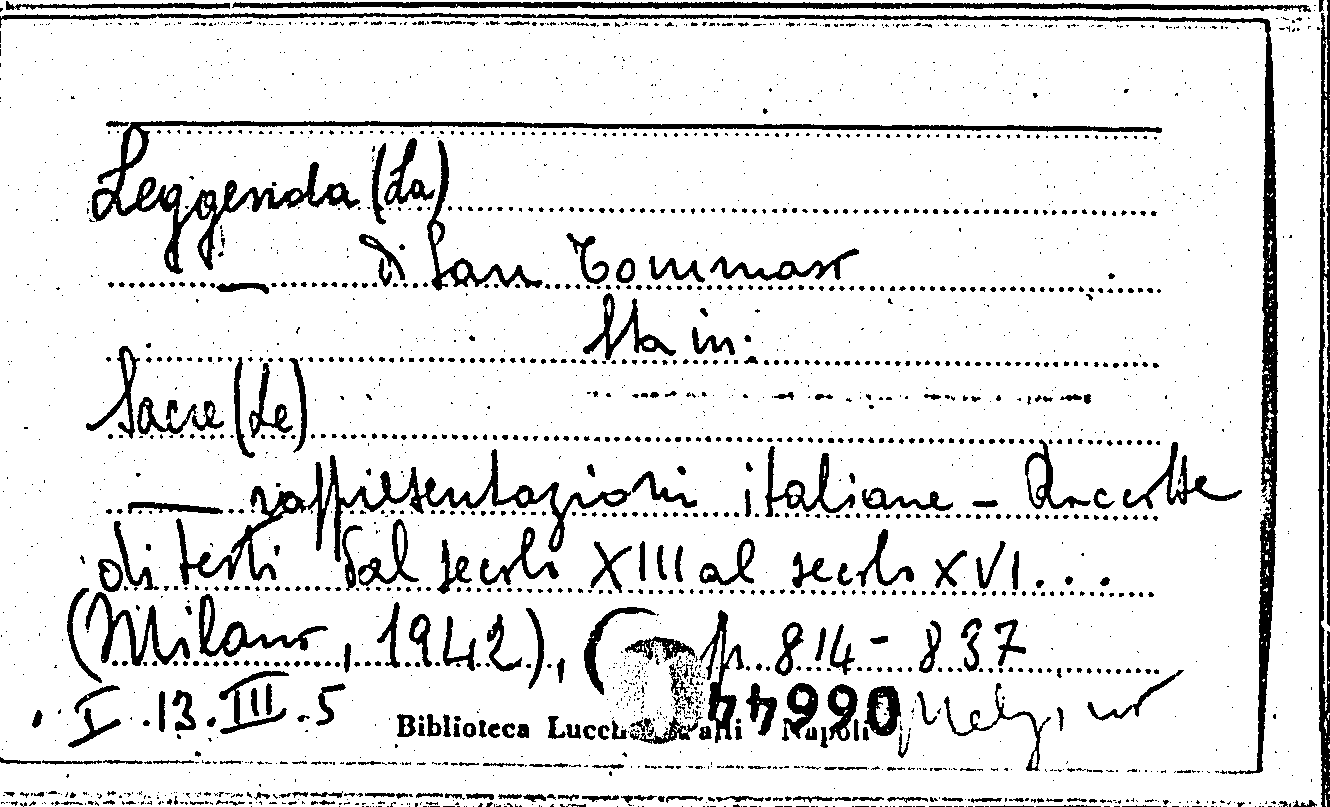 Leggenda (La)
— di San Tommaso
Sta in:
Sacre (Le)
— rappresentazioni italiane - Raccolta
di testi dal secolo XIII al secolo XVI...
(Milano, 1942), p. 814-837
I.13.III.5
066044
Biblioteca Lucchesi Palli Napoli